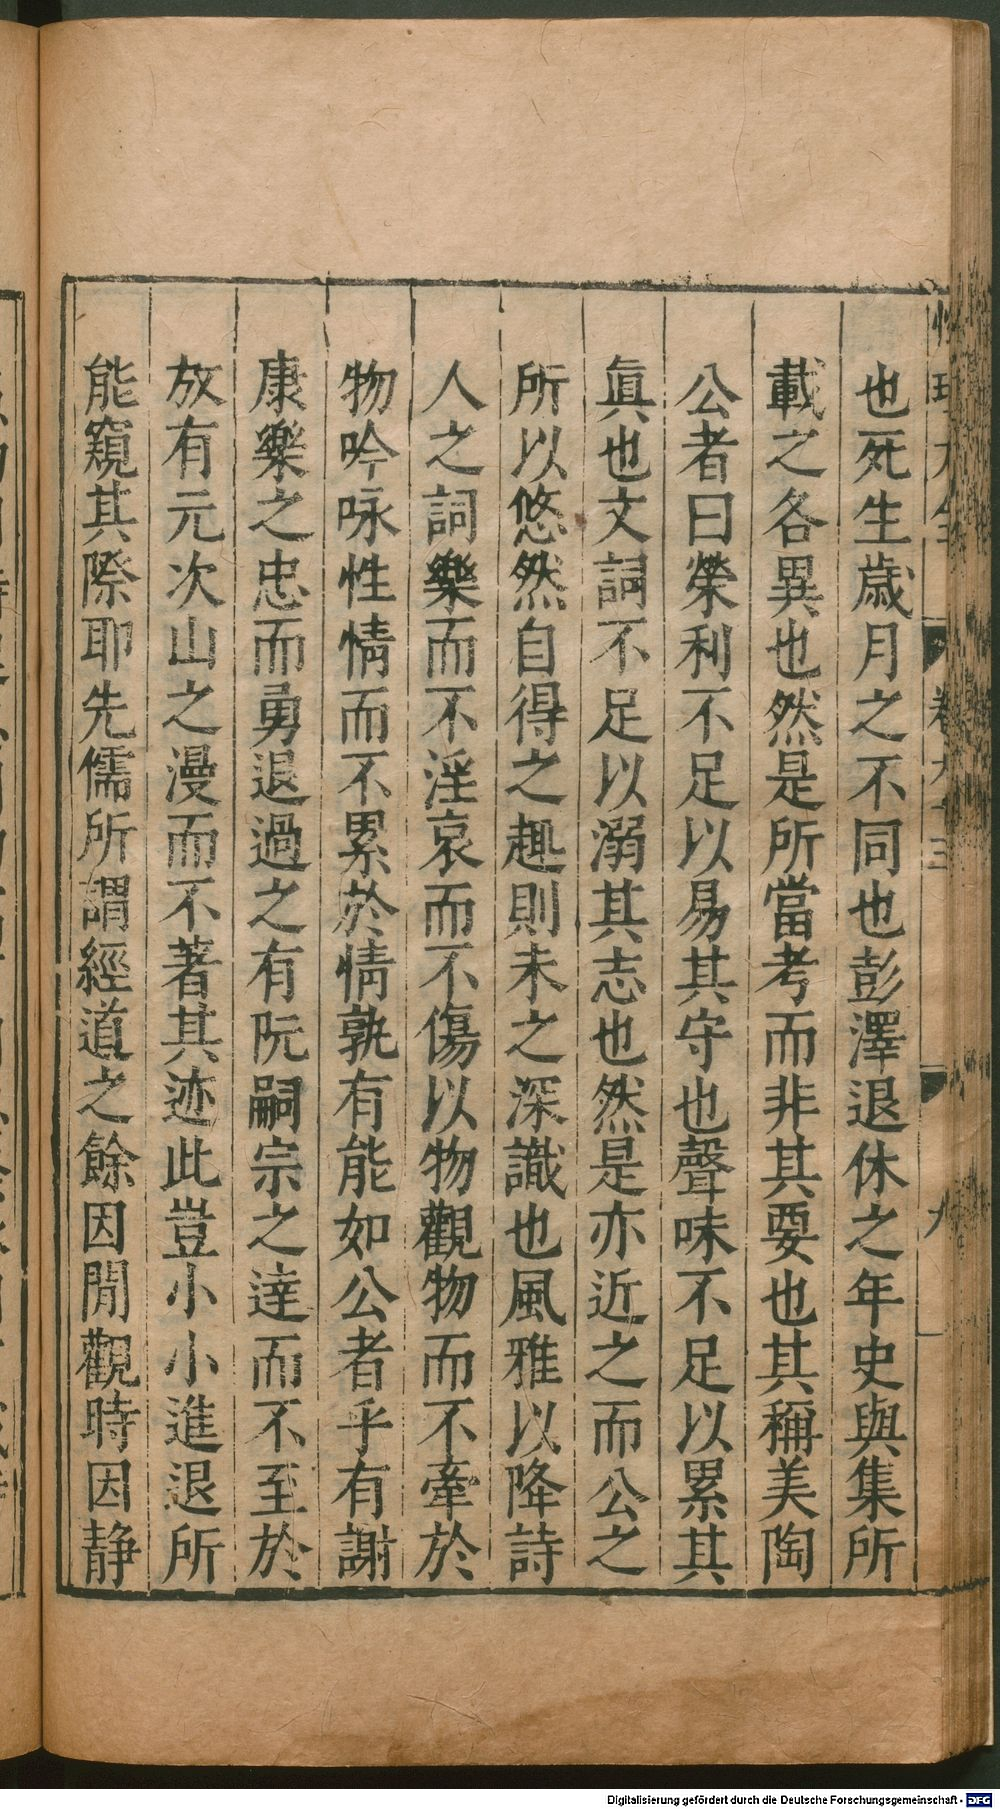 也死生歲月之不同也彭澤退休之年史與集所
載之各異也然是所當考而非其要也其稱美陶
公者曰榮利不足以易其守也聲味不足以累其
眞也文詞不足以溺其志也然是亦近之而公之
所以悠然自得之趣則未之深識也風雅以降詩
人之詞樂而不淫哀而不傷以物觀物而不牽於
物吟咏性情而不累於情孰有能如公者乎有謝
康樂之忠而勇退過之有阮嗣宗之達而不至於
放有元次山之漫而不著其迹此豈小小進退所
能窺其際耶先儒所謂經道之餘因閒觀時因静
Digitalisierung gefördert durch die Deutsche Forschungsgemeinschaft - DFG